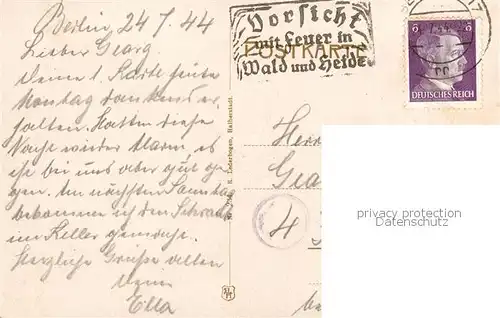 Berlin, 24 / 7. 44
Lieber Georg
Deine l. Karte heute
Montag dankend er-
halten. Hatten diese
Nacht wieder Alarm es
ist bei uns aber gut ge-
gen. Am nächsten Samstag
bekommen wir den Schrank
im Keller gemacht.
Herzliche Grüße allen
Deine
Ella
Vorsicht
mit Feuer in
Wald und Heide
POSTKARTE
6
DEUTSCHES REICH
Lederbogen, Halberstadt.
Herr
4
privacy protection
Datenschutz